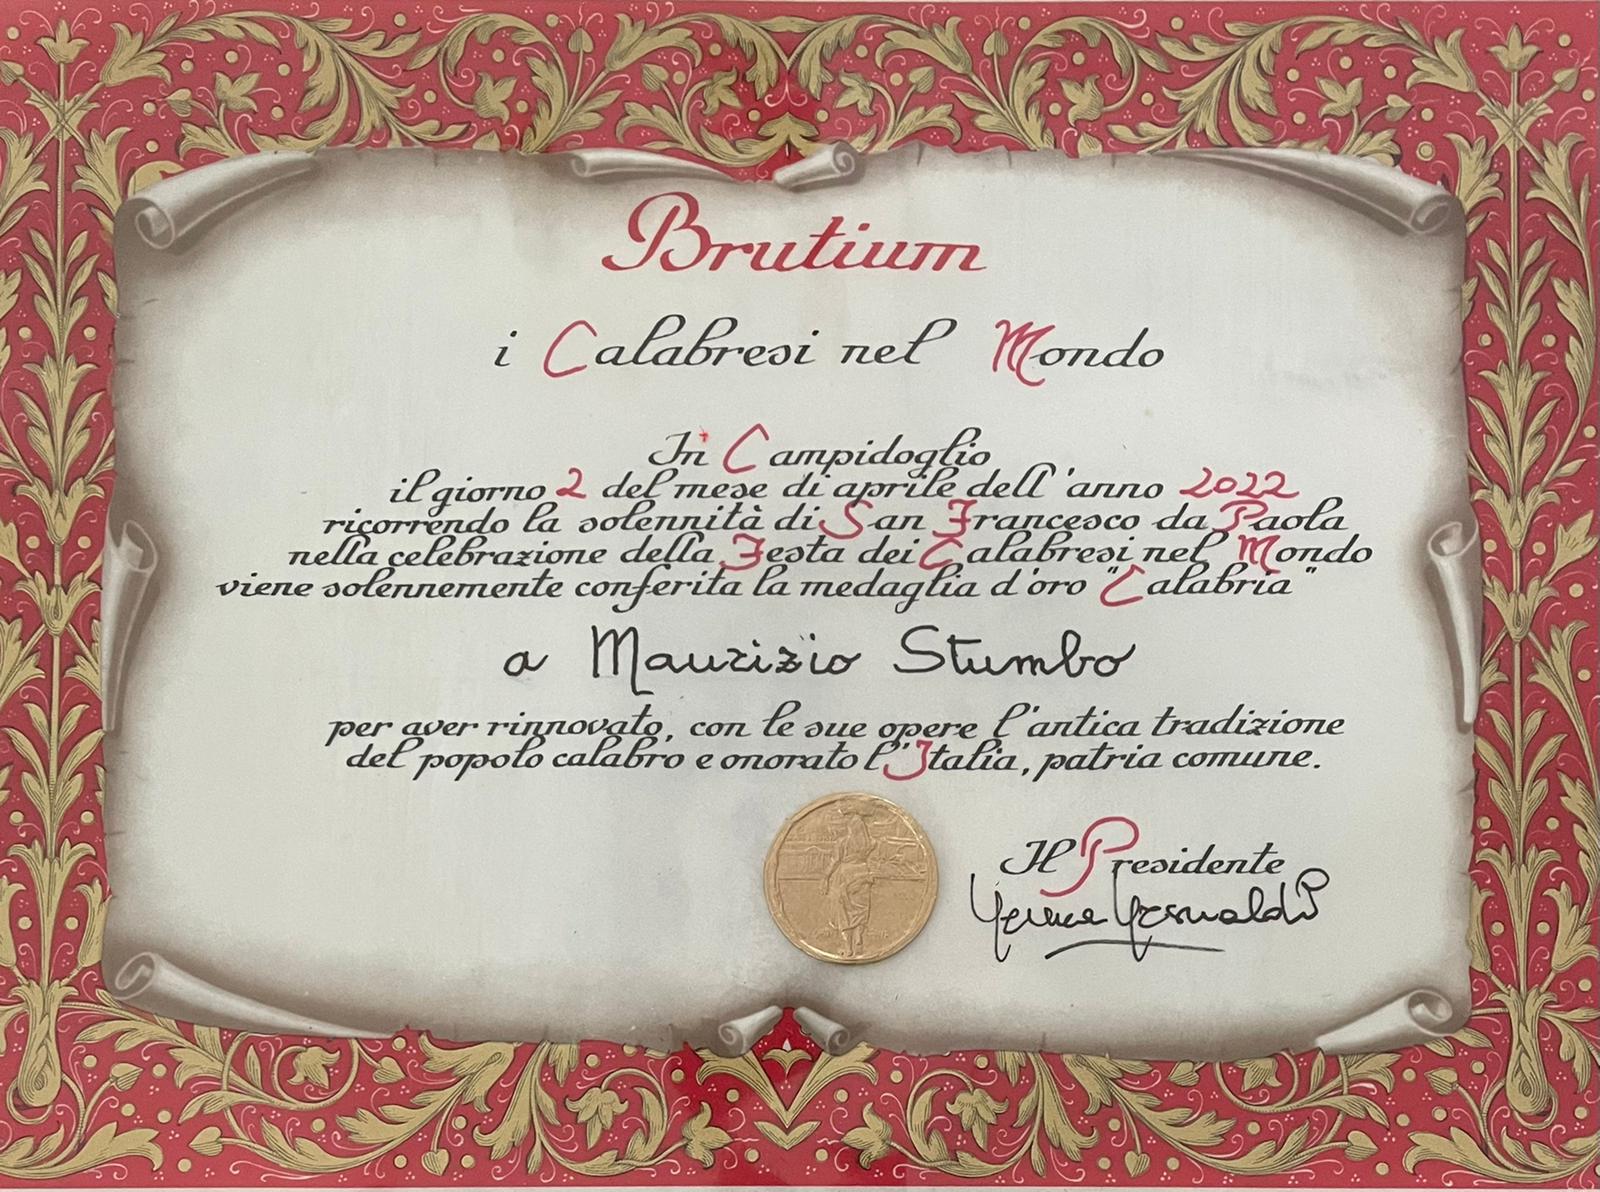 Brutium
i Calabresi nel Mondo
In Campidoglio
il giorno 2 del mese di aprile dell'anno 2022
ricorrendo la solennità di San Francesco da Paola
nella celebrazione della Festa dei Calabresi nel Mondo
viene solennemente conferita la medaglia d'oro "Calabria"
a Maurizio Stumbo
per aver rinnovato, con le sue opere l'antica tradizione
del popolo calabro e onorato l'Italia, patria comune.
Il Presidente
Gesualdi